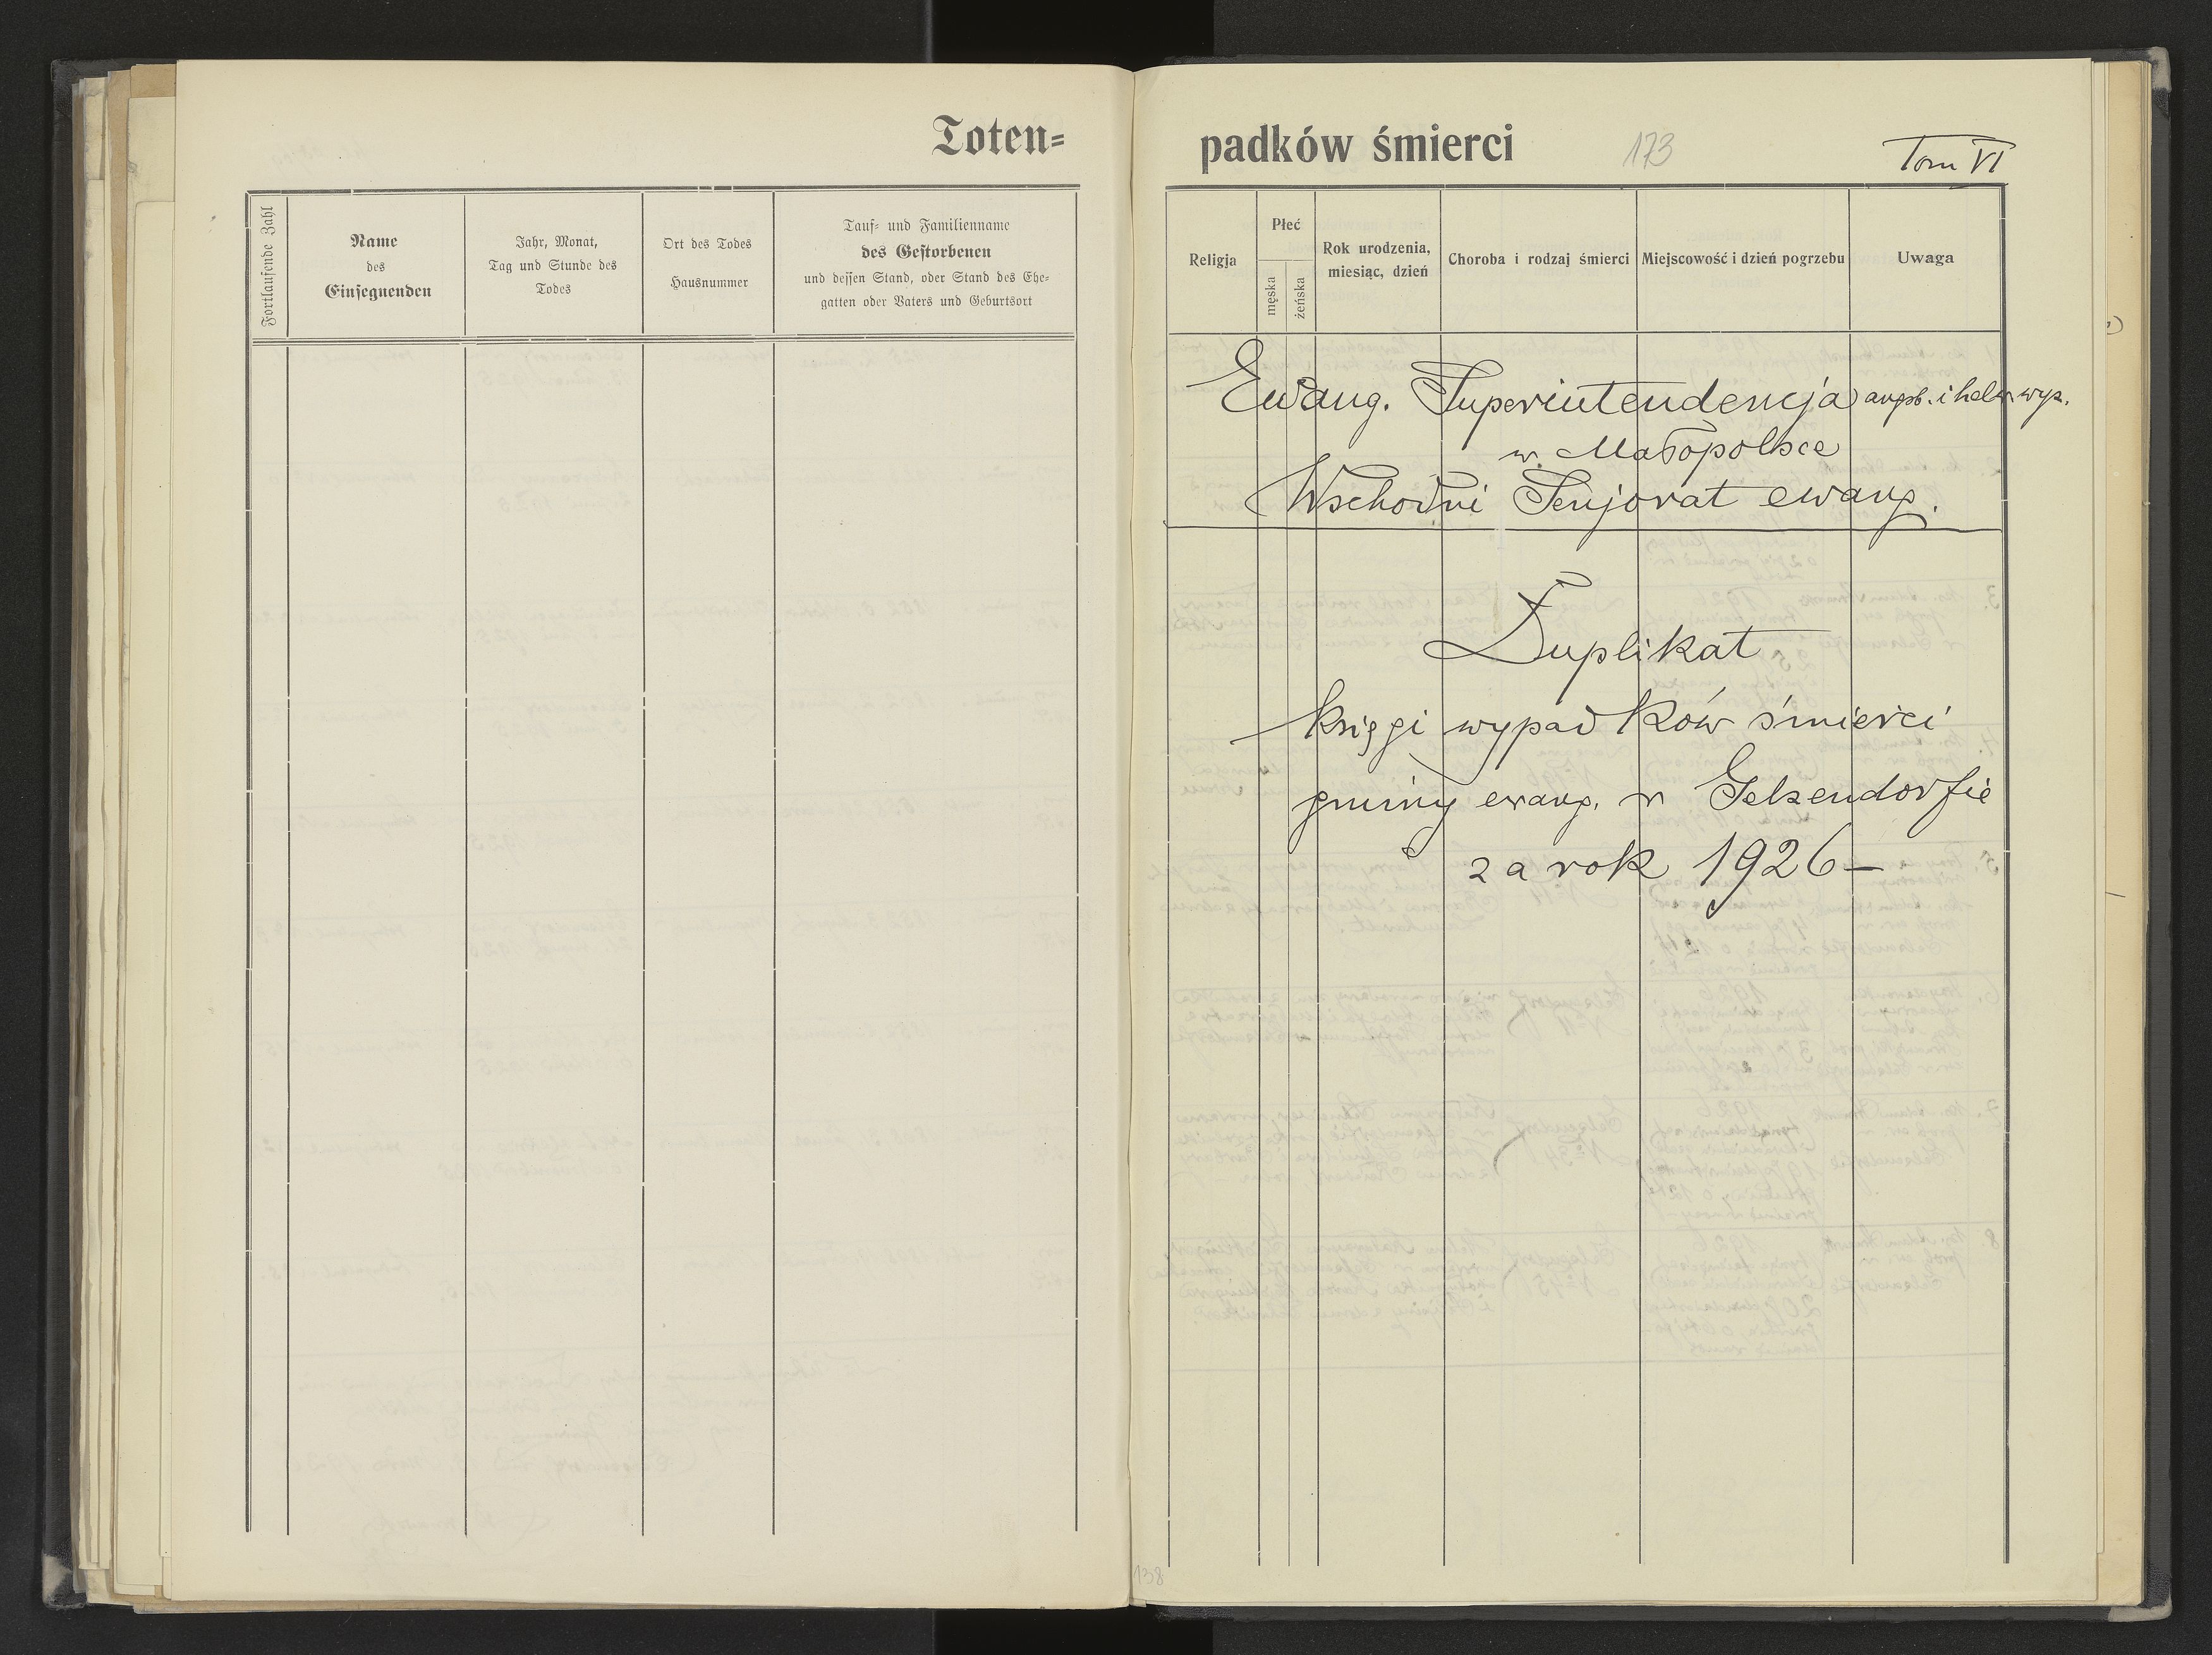 Toten-
Fortlaufende Zahl
Name
des
Einsegnenden
Jahr, Monat,
Tag und Stunde des
Todes
Ort des Todes
Hausnummer
Tauf- und Familienname
des Gestorbenen
und dessen Stand, oder Stand des Ehe-
gatten oder Vaters und Geburtsort
padków śmierci
173
Tom VI
Religja
Płeć
męska
żeńska
Rok urodzenia,
miesiąc, dzień
Choroba i rodzaj śmierci
Miejscowość i dzień pogrzebu
Uwaga
Ewang. Superintendencja augsb. i helw. wyz.
w. Małopolsce
Wschodni Senjorat ewang.
Duplikat
księgi wypadków śmierci
gminy ewang. w Gelsendorfie
za rok 1926-
138